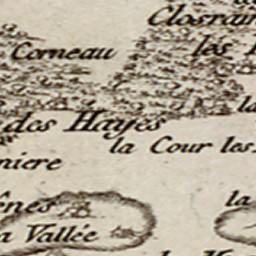 Closrair
Corneau
lés
des Hayes
la
la Cour les
niere
ênes
la
a Vallée
la